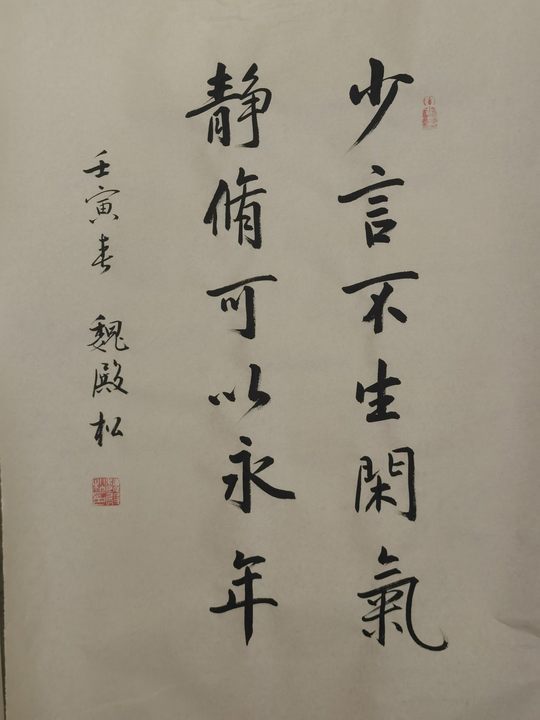 少言不生閑氣
静脩可以永年
壬寅春 魏殿松